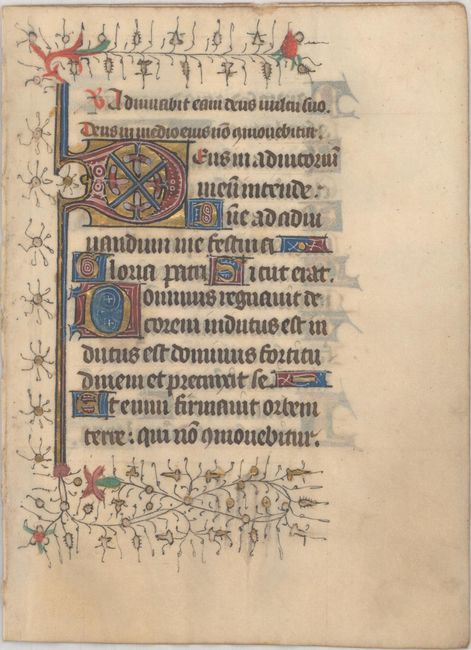 V Adiuuabit eam deus uultu suo.
Deus in medio eius nō 9mouebitur.
Deus in adiutoriū
meū intende.
Dñe ad adiu
uandum me festina
Gloria patri Sicut erat.
Dominus regnauit de
corem indutus est in
dutus est dominus fortitu
dinem et precinxit se
Et enim firmauit orbem
terre: qui nō 9mouebitur.